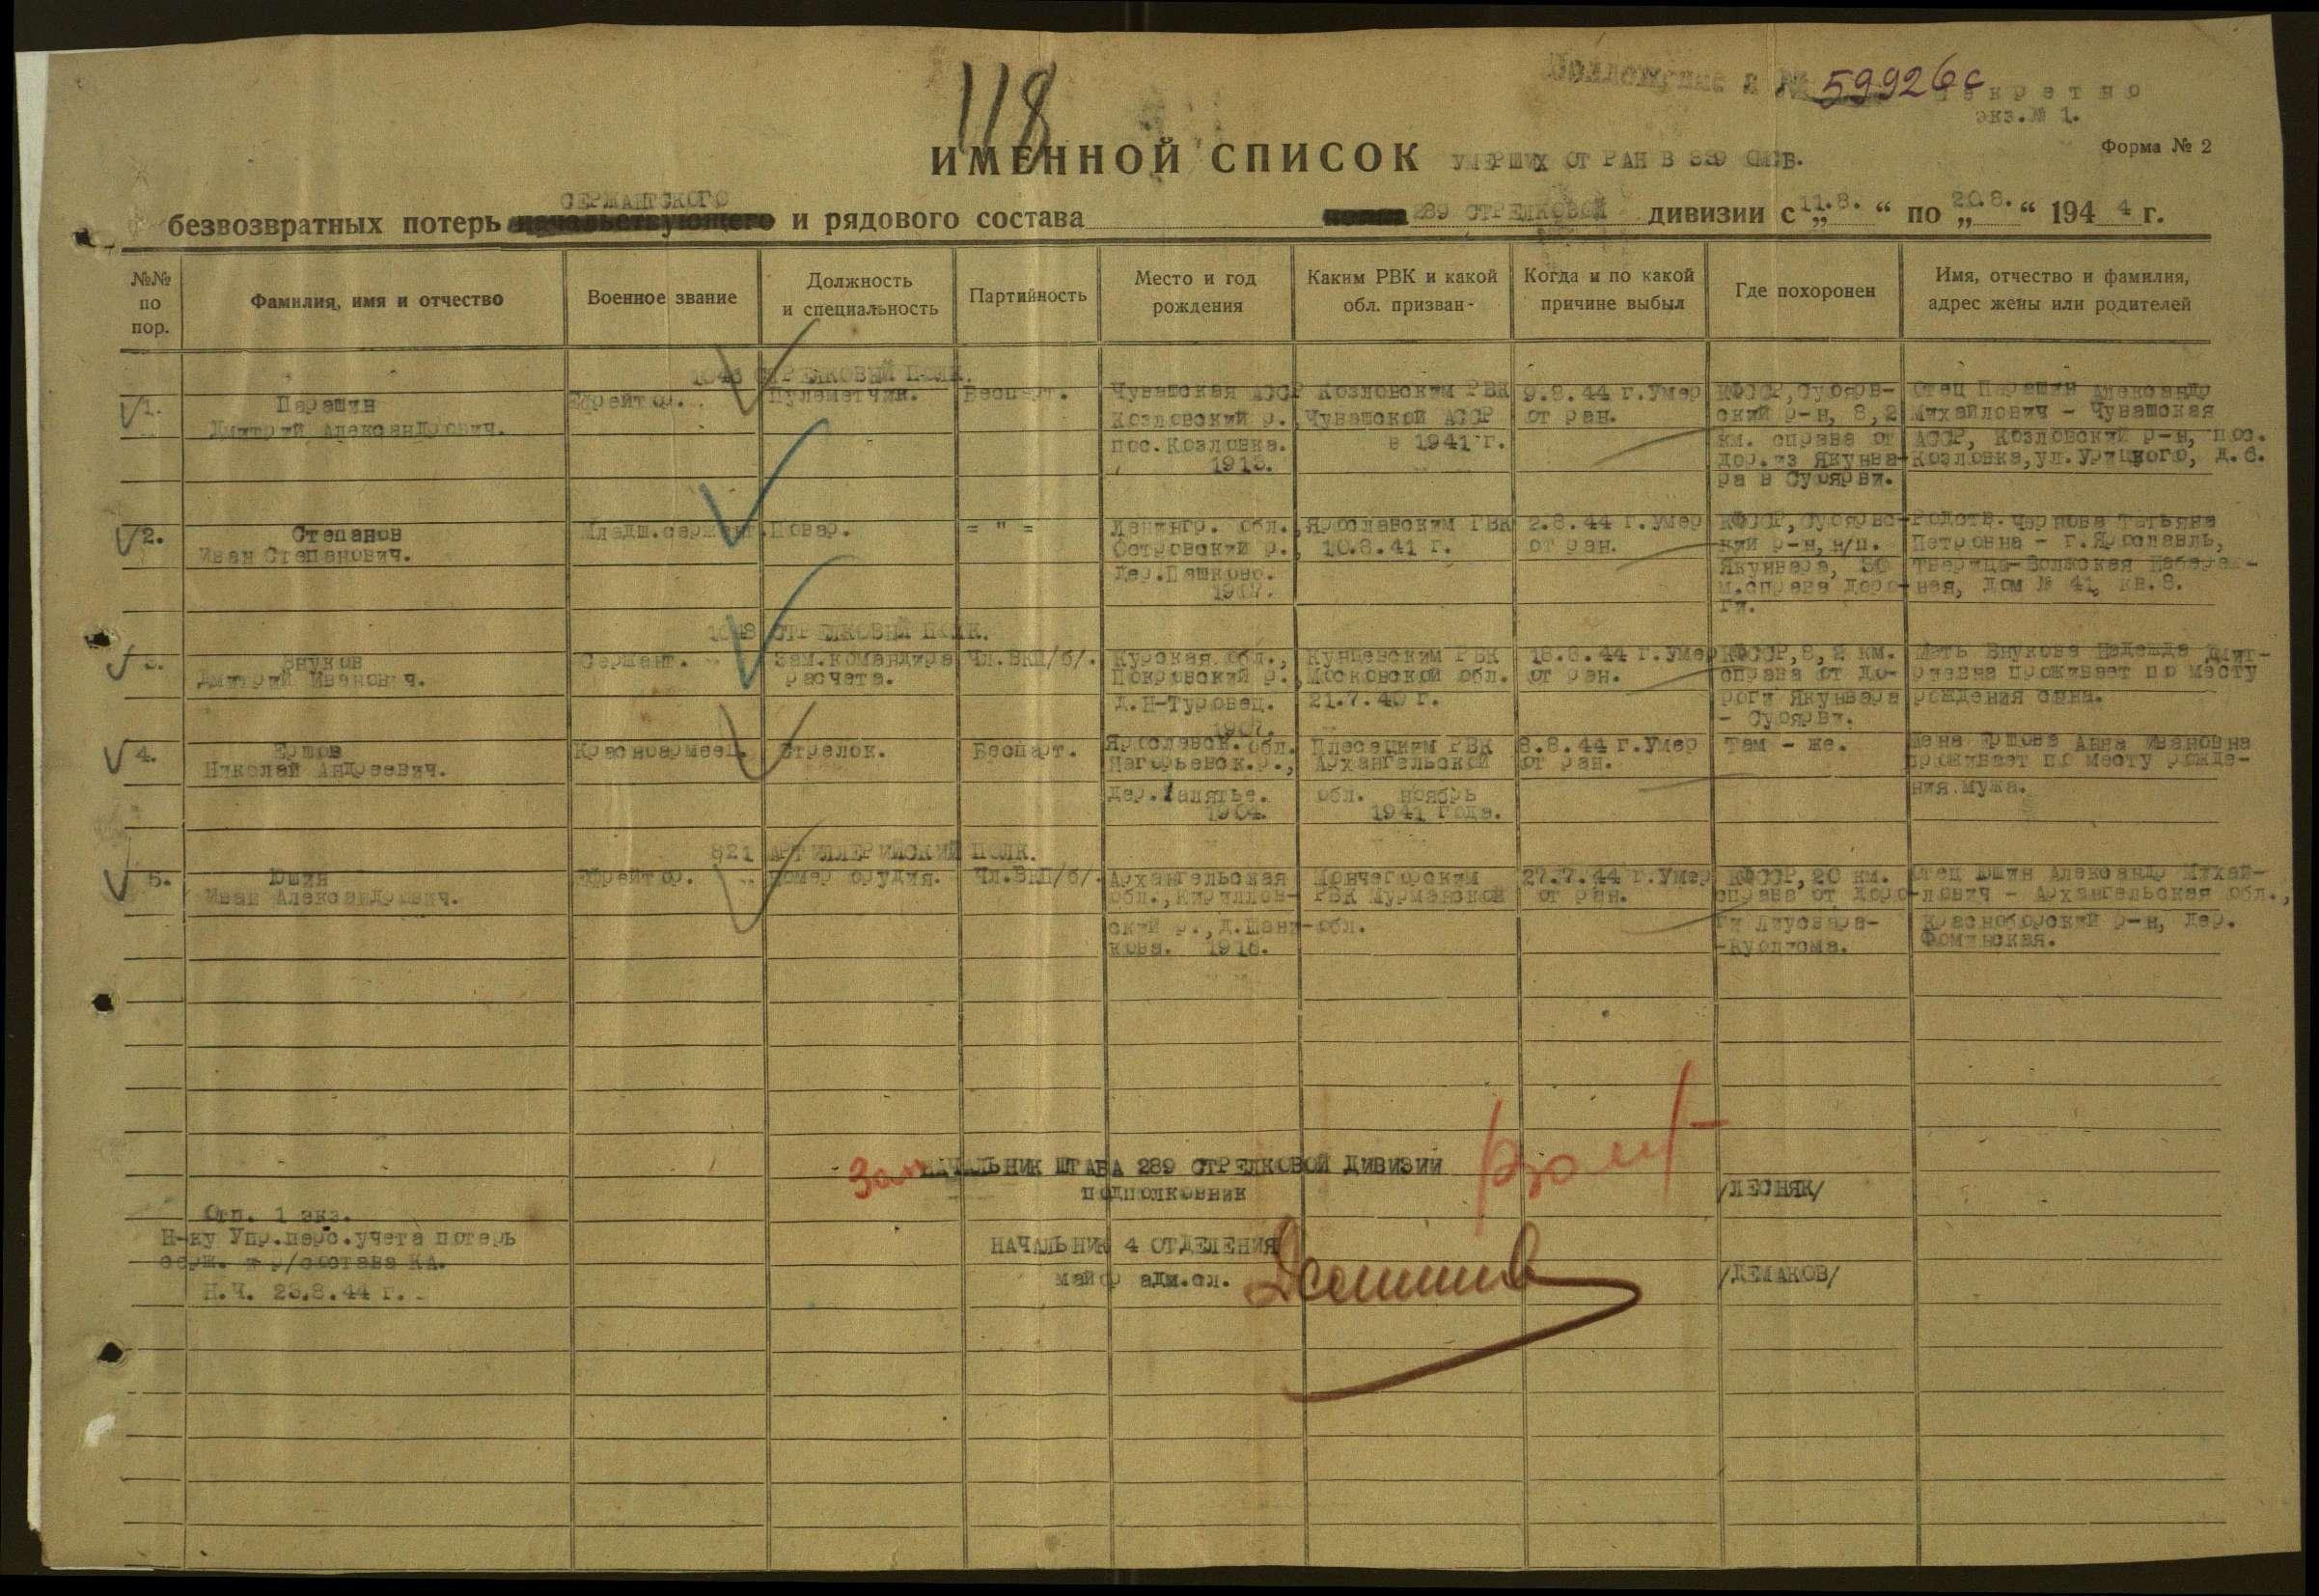 118
59926с
секретно
экз.№ 1.
Форма № 2
ИМЕННОЙ СПИСОК УМЕРШИХ ОТ РАН В
СЕРЖАНТСКОГО
безвозвратных потерь начальствующего и рядового состава 289 СТРЕЛКОВОЙ дивизии с „11.8.“ по „20.8.“ 1944 г.
№№ по пор.
Фамилия, имя и отчество
Военное звание
Должность и специальность
Партийность
Место и год рождения
Каким РВК и какой обл. призван-
Когда и по какой причине выбыл
Где похоронен
Имя, отчество и фамилия, адрес жены или родителей
СТРЕЛКОВЫЙ ПОЛК.
1. Парашин Ефрейтор. Пулеметчик. Беспарт. Чувашская АССР Козловским РВК 9.8.44 г. Умер КФССР, Суоярв- Отец Парашин Александр
Дмитрий Александрович. Козловский р. Чувашской АССР от ран. ский р-н, 8,2 Михайлович - Чувашская
пос. Козловка. в 1941 г. км. справа от АССР, Козловский р-н, пос.
1913. дор. из Якунва- Козловка, ул. Урицкого, д.6.
ра в Суоярви.
2. Степанов Младш.сержант. Повар. = " = Ленингр. обл., Ярославским ГВК 2.8.44 г. Умер КФССР, Суоярвс- Родств. Чернова Татьяна
Иван Степанович. Островский р., 10.8.41 г. от ран. кий р-н, н/п. Петровна - г. Ярославль,
дер. Пашково. Якунвара, 50 Тверица-Волжская Набереж-
1907. м.справа доро- ная, дом № 41, кв.8.
ги.
1048 СТРЕЛКОВЫЙ ПОЛК.
3. Внуков Сержант. Зам.командира Чл.ВКП/б/. Курская обл., Кунцевским РВК 18.8.44 г. Умер КФССР, 8,2 км. Мать Внукова Надежда Дмит-
Дмитрий Иванович. расчета. Покровский р., Московской обл. от ран. справа от до- риевна проживает по месту
д. Н-Туровец. 21.7.40 г. роги Якунвара рождения сына.
1907. - Суоярви.
4. Ершов Красноармеец. Стрелок. Беспарт. Ярославск. обл. Плесецким РВК 8.8.44 г. Умер Там - же. Жена Ершова Анна Ивановна
Николай Андреевич. Нагорьевск.р., Архангельской от ран. проживает по месту рожде-
обл. ноябрь ния мужа.
1904. 1941 года.
821 АРТИЛЛЕРИЙСКИЙ ПОЛК.
5. Юшин Ефрейтор. Номер орудия. Чл.ВКП/б/. Архангельская Мончегорским 27.7.44 г. Умер КФССР, 20 км. Отец Юшин Александр Михай-
Иван Александрович. обл., Кириллов- РВК Мурманской от ран. справа от доро- лович - Архангельская обл.,
ский р., д. обл. ги Лиусвара- Красноборский р-н, дер.
1918. -Куолисма. Фоминская.
Зам НАЧАЛЬНИК ШТАБА 289 СТРЕЛКОВОЙ ДИВИЗИИ
подполковник /ЛЕСНЯК/
Отп. 1 экз.
Н-ку Упр.перс.учета потерь
серж. и р/состава КА.
Н.Ч. 23.8.44 г.
НАЧАЛЬНИК 4 ОТДЕЛЕНИЯ
майор адм.сл. /ДЕМАКОВ/